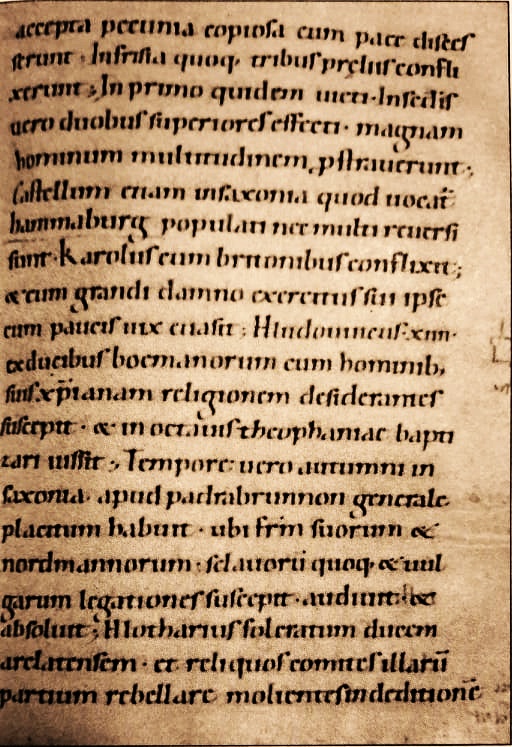 accepta pecunia copiosa cum pace disces
serunt . Infrisia quoq; tribus pręliis confli
xerunt ; In primo quidem uicti . Insedis
uero duobus superiores effecti . magnam
hominum multitudinem pstrauerunt ;
Castellum etiam insaxonia quod uocat̄
hammaburg populati nec multi reuersi
sunt . Karolus cum britonibus conflixit ;
& cum grandi damno exercitus sui ipse
cum paucis uix euasit ; Hludouuicus .xiiii.
ex ducibus boemanorum cum hominib;
suis xp̄ianam religionem desiderantes
suscepit . & in octauis theophaniae bapti
zari iussit ; Tempore uero autumni in
saxonia . apud padrabrunnon generale
placitum habuit . ubi fr̄m suorum &
nordmannorum . sclauorū quoq; & uul
garum legationes suscepit . audiuit . &
absoluit ; Hlotharius folcratum ducem
arelatensem . et reliquos comites illarū
partium rebellare molientes indeditionē